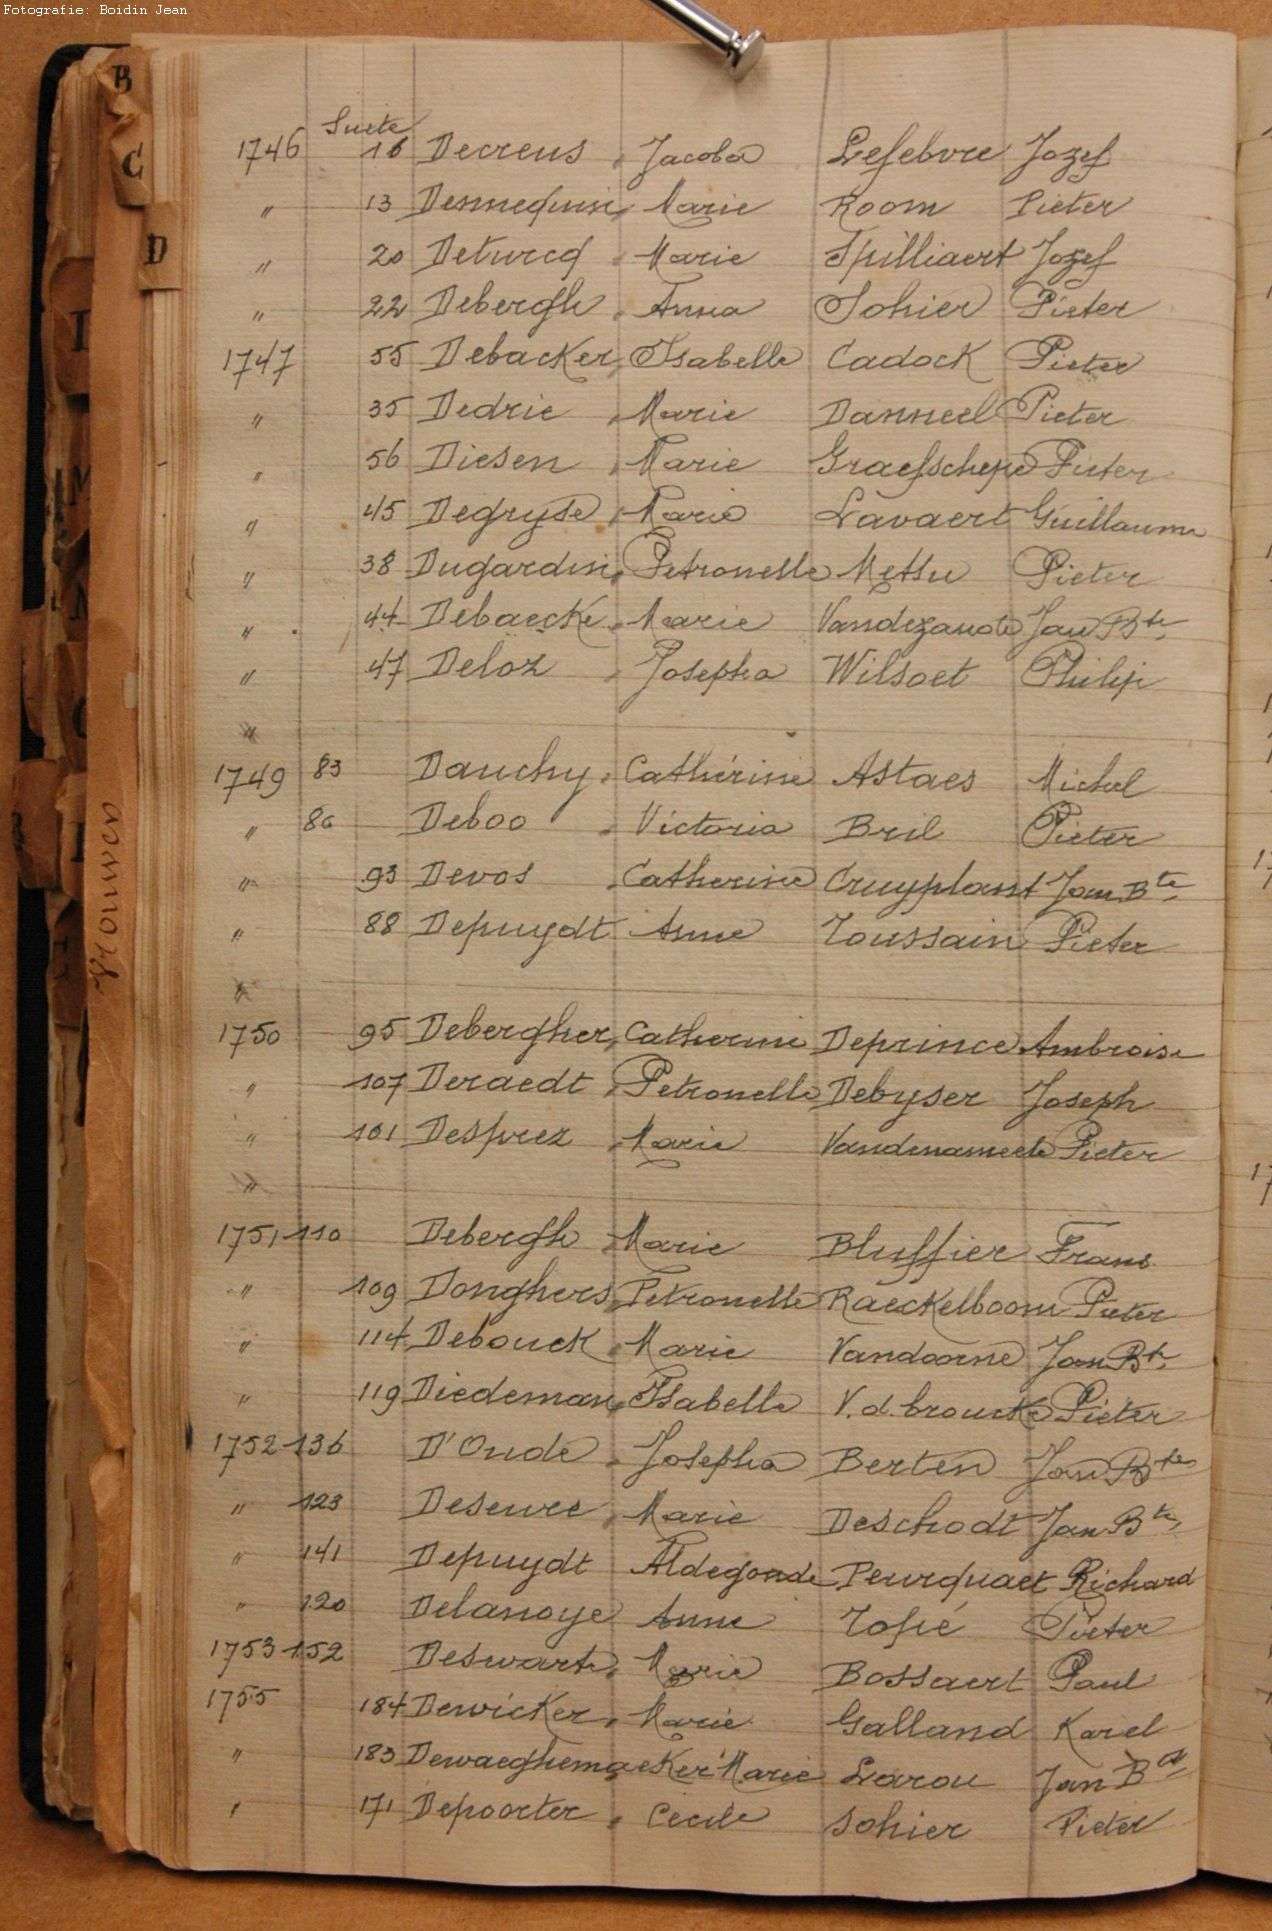 Fotografie: Boidin Jean
B
C
D
Vrouwen
Suite
1746 16 Decreus Jacoba Lefebvre Jozef
" 13 Dennequin Marie Room Pieter
" 20 Deturcq Marie Spilliaert Jozef
" 22 Debergh Anna Sohier Pieter
1747 55 Debacker Isabelle Cadock Pieter
" 35 Dedrie Marie Danneel Pieter
" 56 Diesen Marie Graefschepe Pieter
" 45 Degryse Marie Lavaert Guillaume
" 38 Dugardin Petronelle Mettu Pieter
" 44 Debaecke Marie Vandezande Jan Bte
" 47 Deloz Josepha Wilsoet Philip
"
1749 83 Dauchy Cathérine Astaes Michel
" 86 Deboo Victoria Bril Pieter
" 93 Devos Catherine Cruyplant Jan Bte
" 88 Depuydt Anne Toussain Pieter
"
1750 95 Debergher Catherine Deprince Ambroise
" 107 Deraedt Petronelle Debyser Joseph
" 101 Desprez Marie Vandenameele Pieter
"
1751 110 Debergh Marie Bluffier Frans
" 109 Donghers Petronelle Raeckelboom Pieter
" 114 Debouck Marie Vandoorne Jan Bte
" 119 Diedeman Isabelle V.d.broucke Pieter
1752 136 D'Oude Josepha Berten Jan Bte
" 123 Deseure Marie Deschodt Jan Bte
" 141 Depuydt Aldegonde Peurquaet Richard
" 120 Delanoye Anne Topié Pieter
1753 152 Deswarte Marie Bossaert Paul
1755 184 Dewicker Marie Galland Karel
" 183 Dewaeghemaeker Marie Larou Jan Bte
" 171 Depoorter Cécile Sohier Pieter